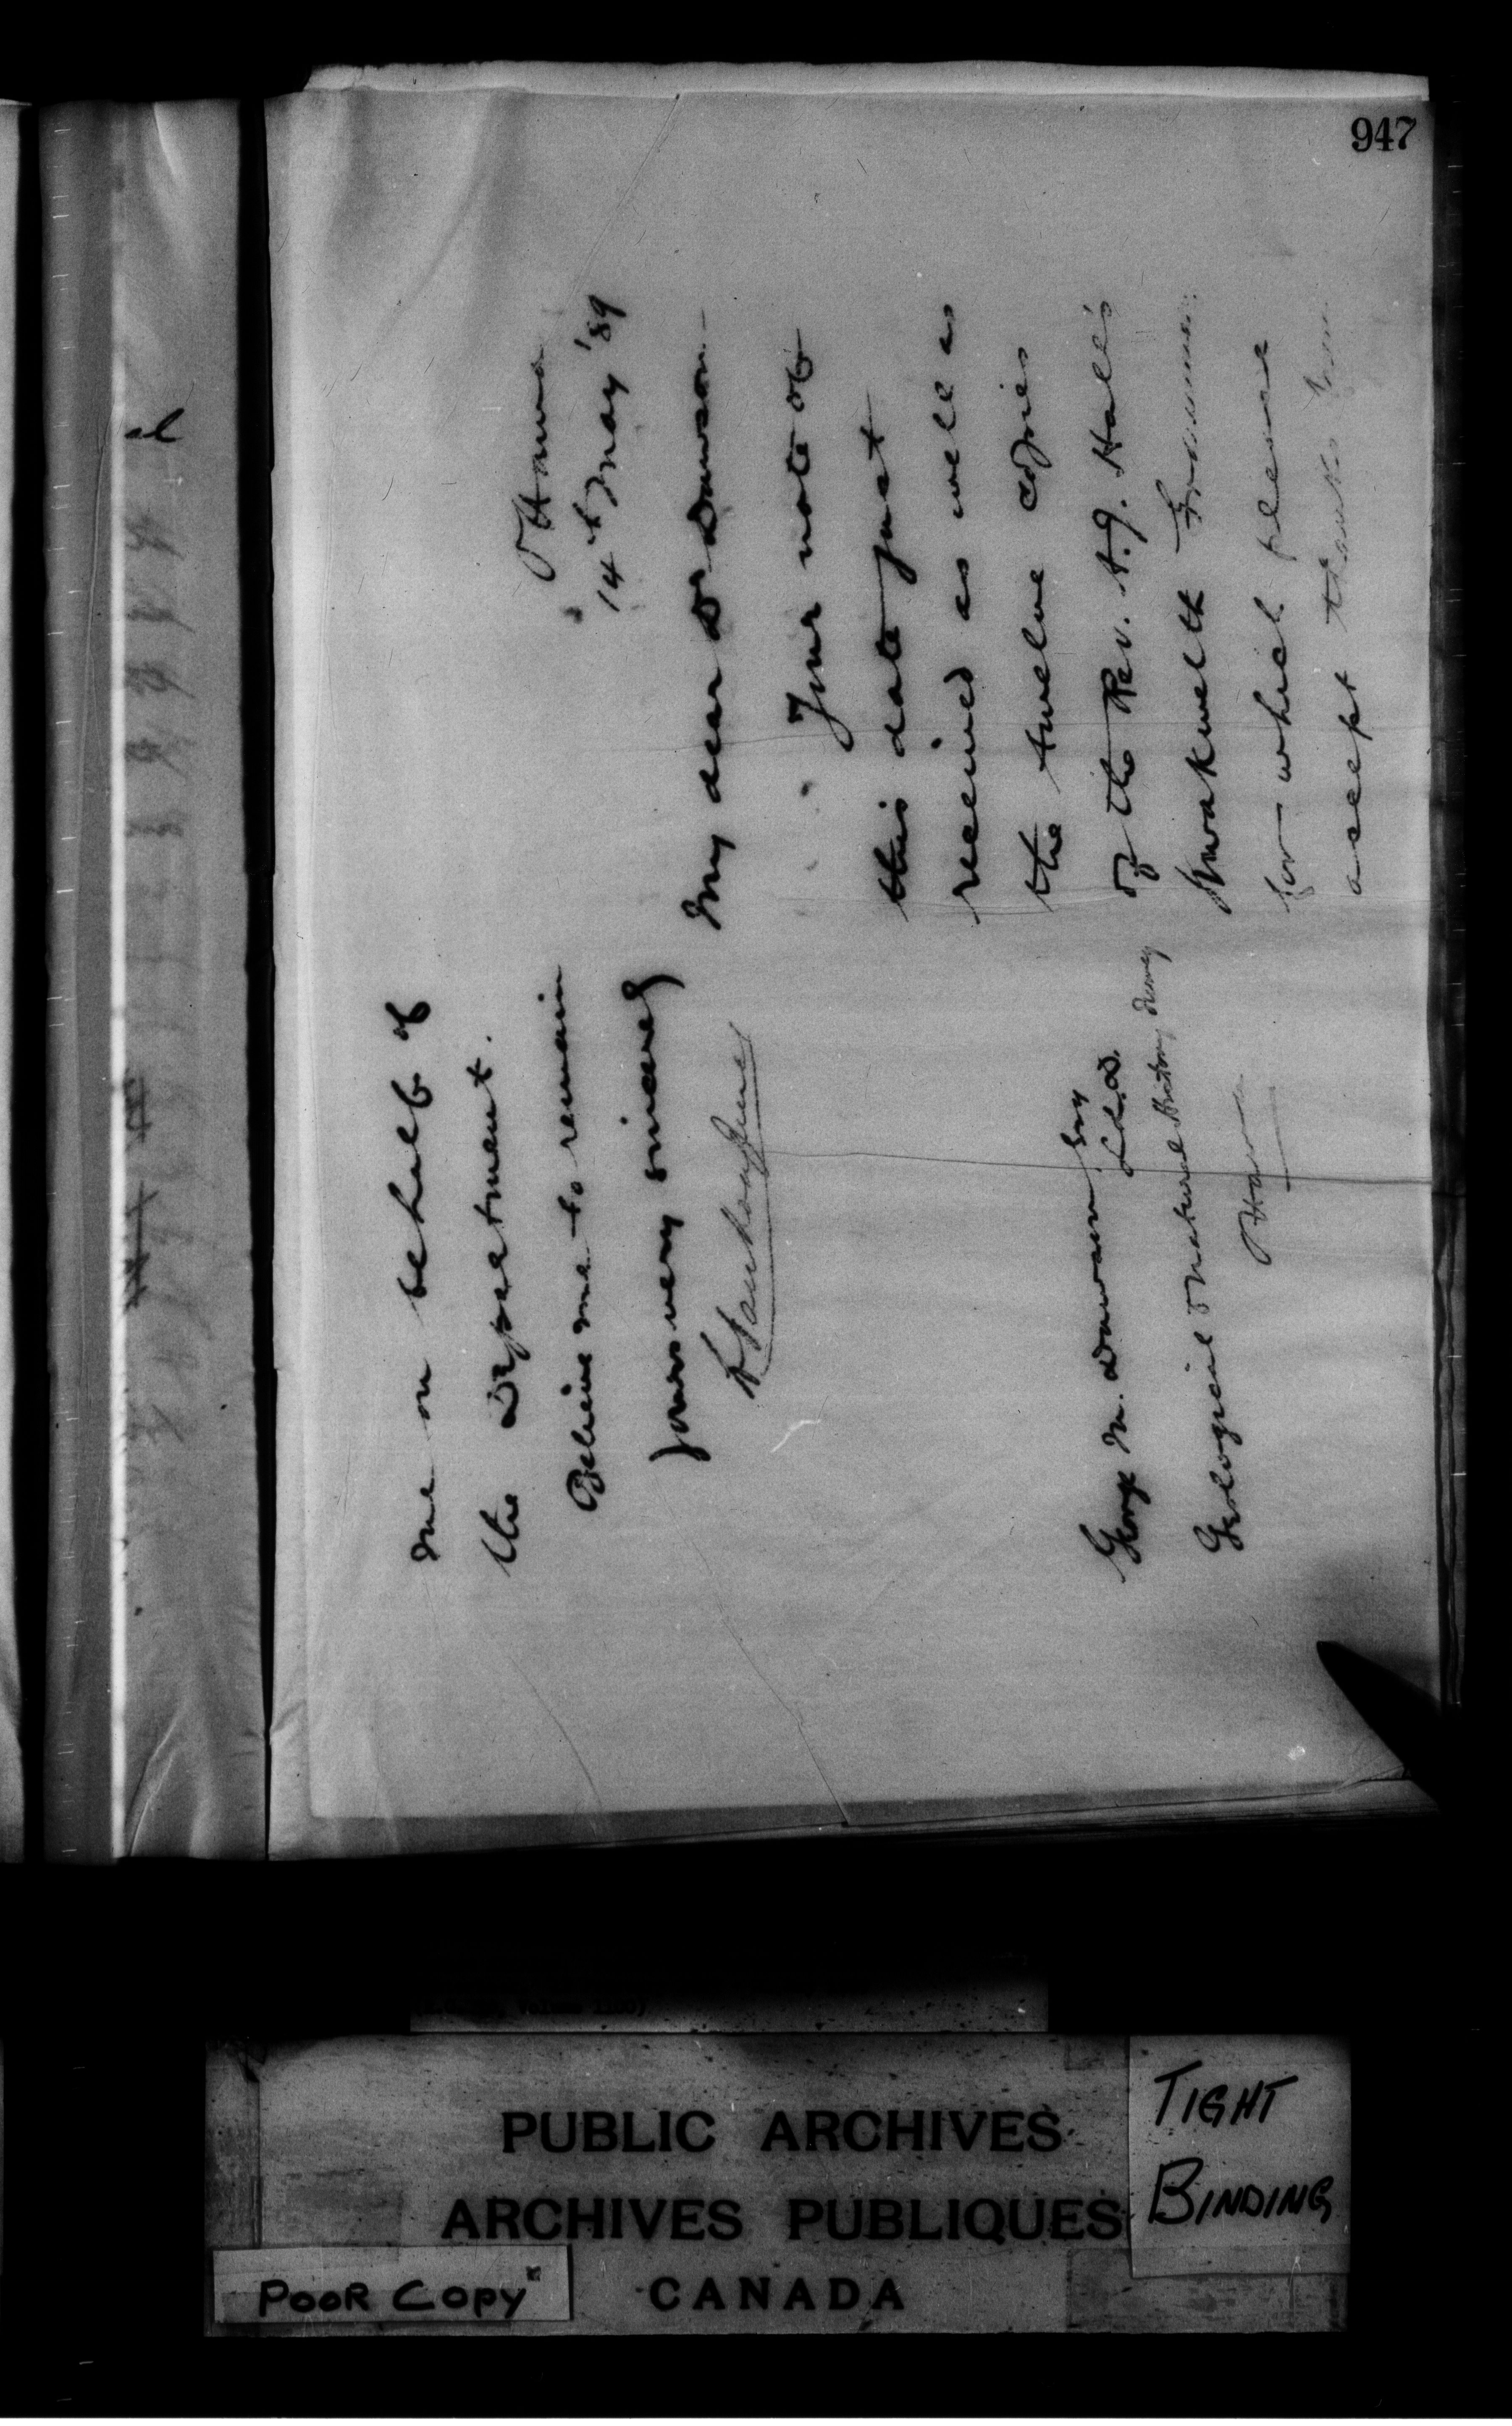 947
Ottawa
14th May '89
My dear Dr Dawson
Your note of
this date just
received as well as
the twelve copies
of the Rev. A. J. Hall's
Kwakiutl Grammar
for which please
accept thanks from
me on behalf of
the Department.
Believe me to remain
yours very sincerely
L Vankoughnet
George M. Dawson Esq
LL.D.
Geological & Natural History Survey
Ottawa
PUBLIC ARCHIVES
ARCHIVES PUBLIQUES
CANADA
TIGHT
BINDING
POOR COPY